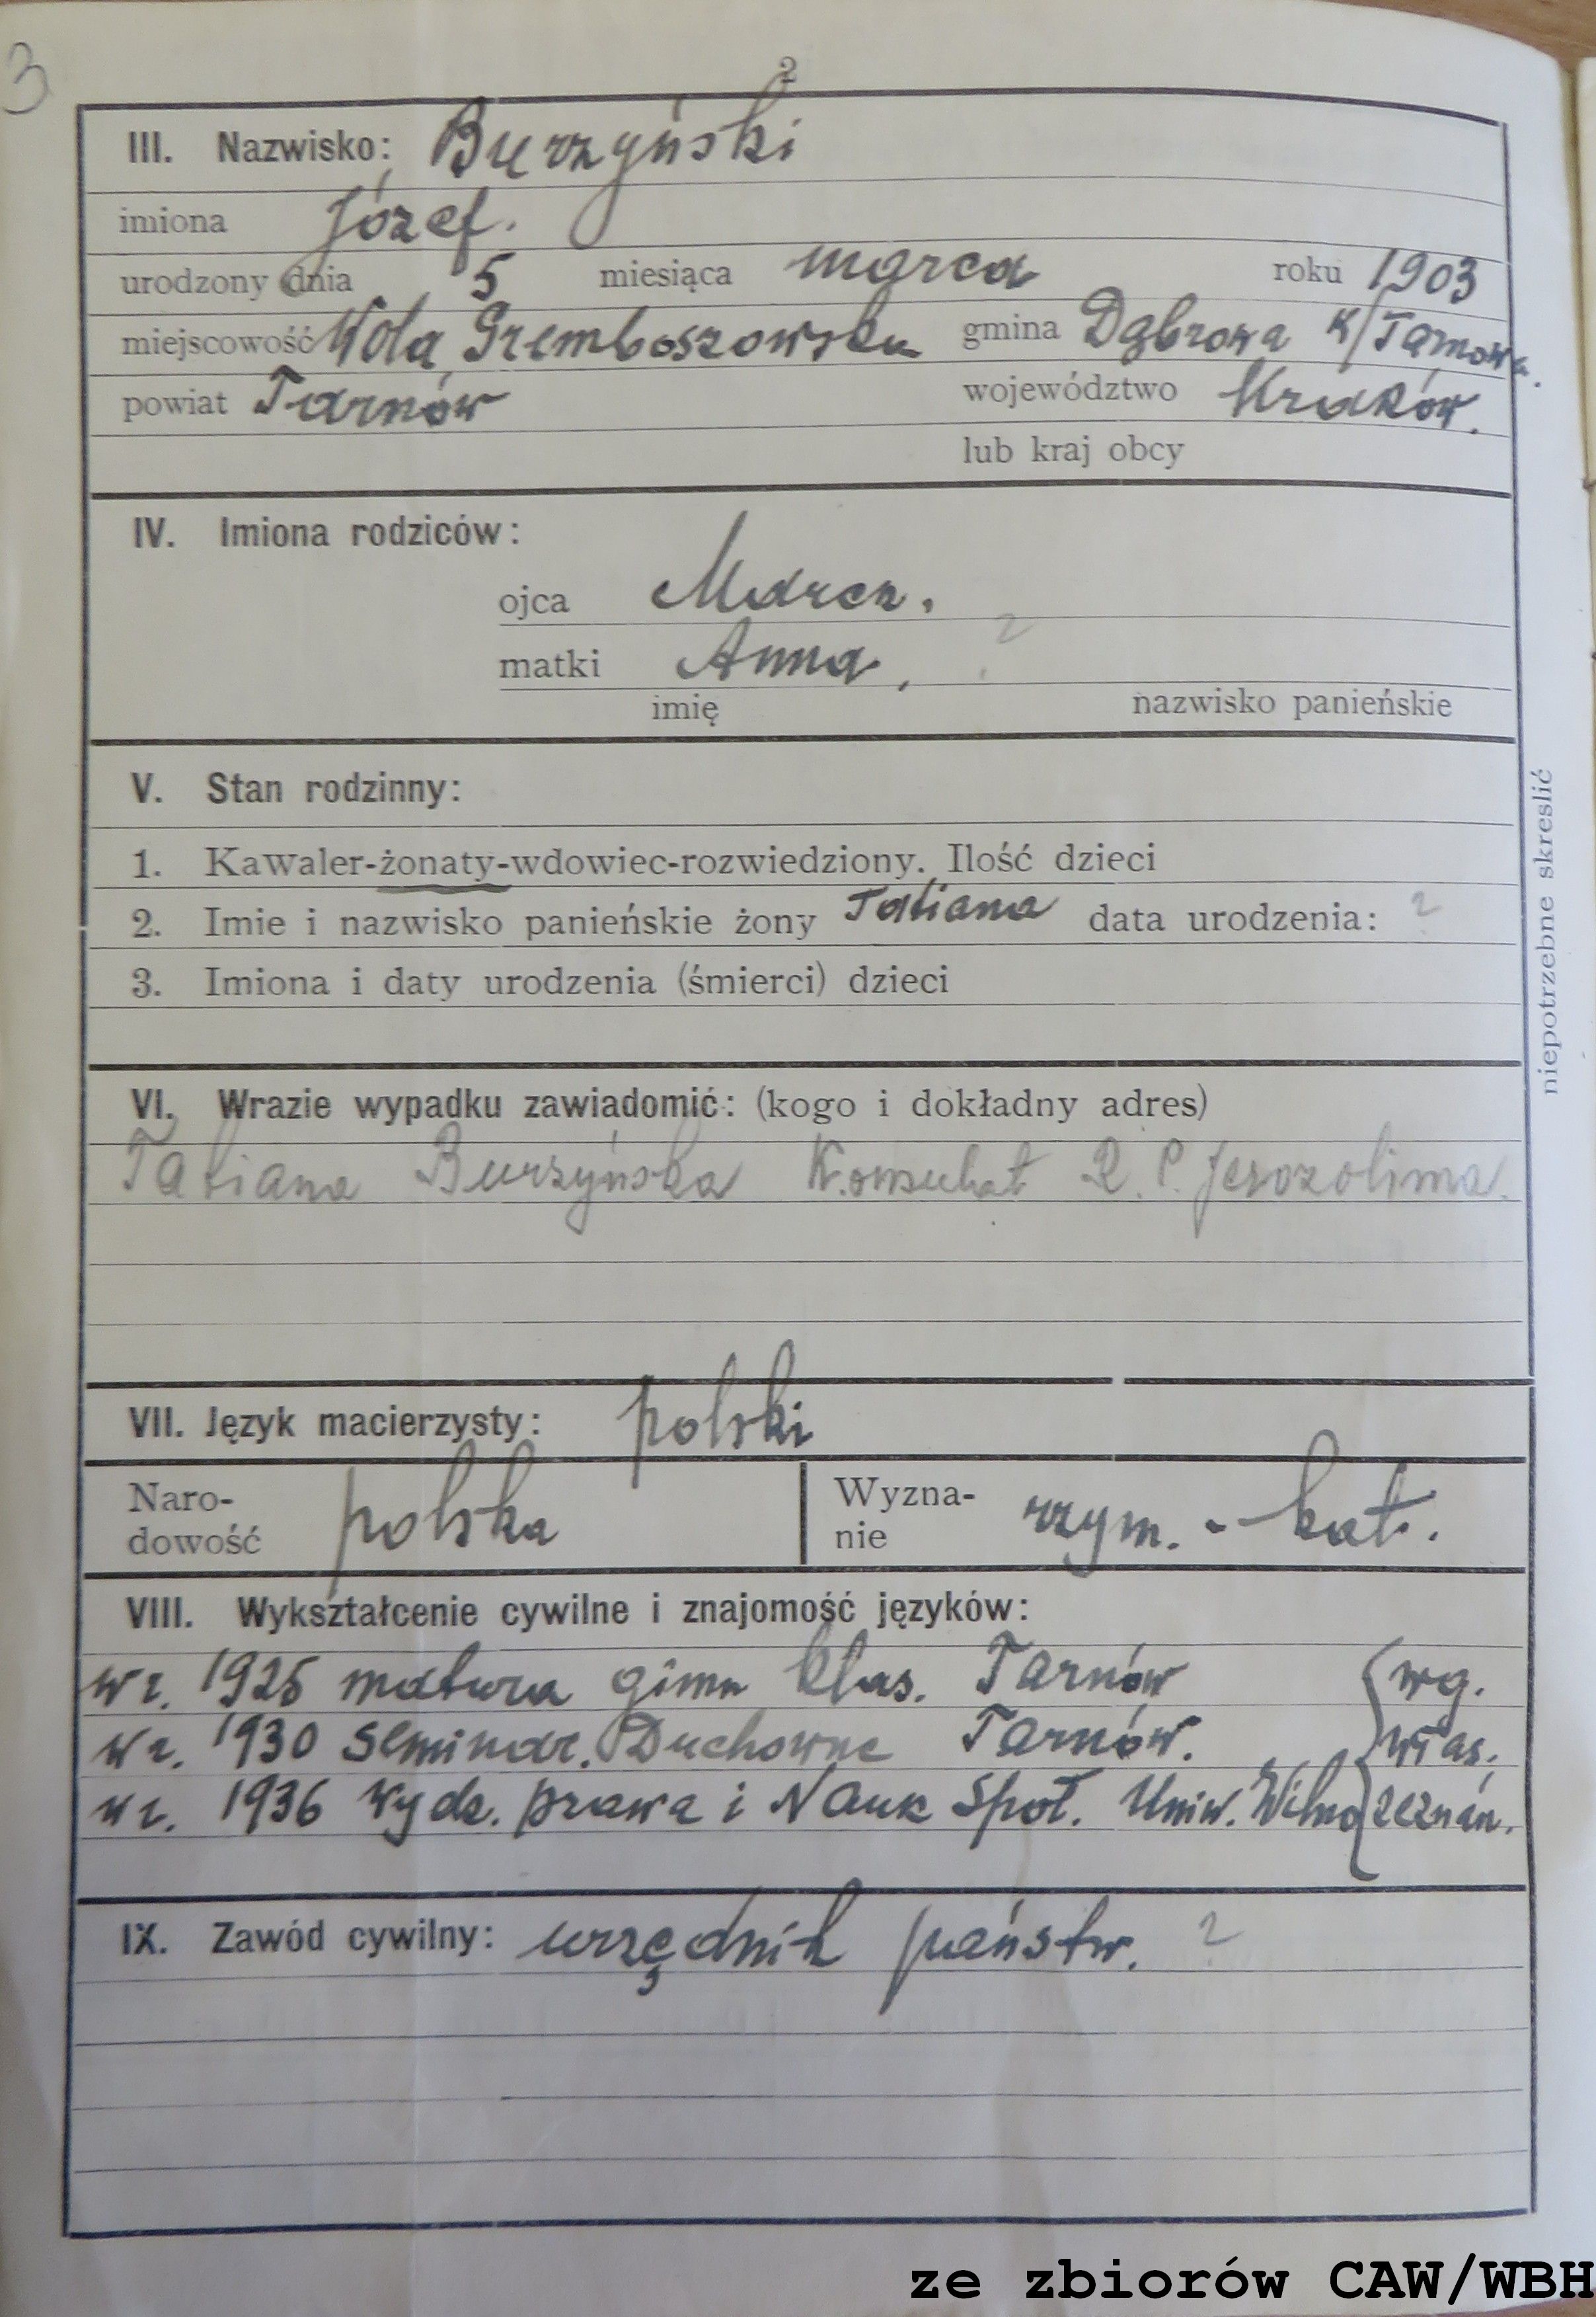 3
2
III. Nazwisko: Burzyński
imiona Józef.
urodzony dnia 5 miesiąca marca roku 1903
miejscowość Wola Gremboszowska gmina Dąbrowa k/Tarnowa.
powiat Tarnów województwo Kraków.
lub kraj obcy
IV. Imiona rodziców:
ojca Marcn.
matki Anna, ?
imię nazwisko panieńskie
V. Stan rodzinny:
1. Kawaler-żonaty-wdowiec-rozwiedziony. Ilość dzieci
2. Imie i nazwisko panieńskie żony Tatiana data urodzenia: ?
3. Imiona i daty urodzenia (śmierci) dzieci
niepotrzebne skreslić
VI. Wrazie wypadku zawiadomić: (kogo i dokładny adres)
Tatiana Burzyńska Konsulat R. P. Jerozolima.
VII. Język macierzysty: polski
Naro-
dowość polska
Wyzna-
nie rzym. - kat.
VIII. Wykształcenie cywilne i znajomość języków:
w r. 1925 matura gimn klas. Tarnów wg.
w r. 1930 seminar. Duchowne Tarnów. włas.
w r. 1936 wydz. prawa i Nauk Społ. Uniw. Wilno zeznań.
IX. Zawód cywilny: urzędnik państw. ?
ze zbiorów CAW/WBH